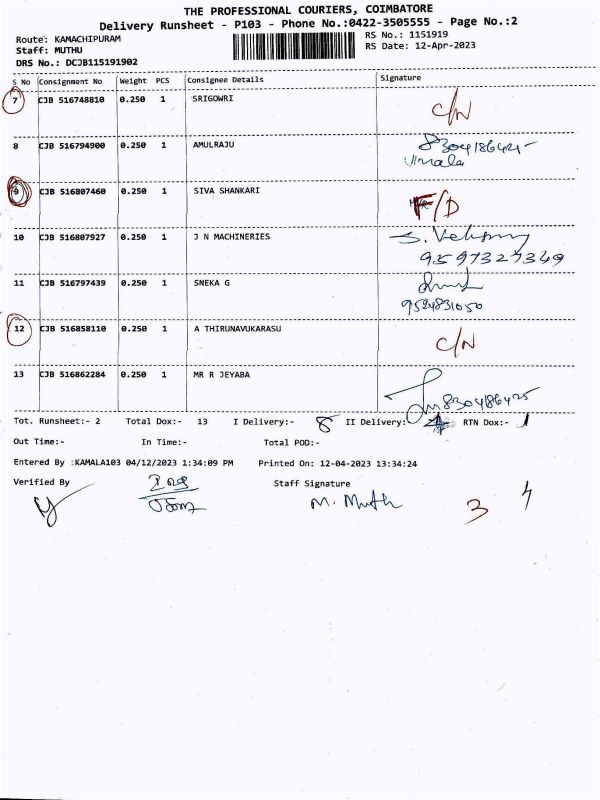 THE PROFESSIONAL COURIERS, COIMBATORE
Delivery Runsheet - P103 - Phone No.:0422-3505555 - Page No.:2
Route: KAMACHIPURAM RS No.: 1151919
Staff: MUTHU RS Date: 12-Apr-2023
DRS No.: DCJB115191902
S No Consignment No Weight PCS Consignee Details Signature
7 CJB 516748810 0.250 1 SRIGOWRI C/N
8 CJB 516794900 0.250 1 AMULRAJU 8304186425
Vimala
9 CJB 516807460 0.250 1 SIVA SHANKARI F/D
10 CJB 516807927 0.250 1 J N MACHINERIES
9597327349
11 CJB 516797439 0.250 1 SNEKA G
9524831050
12 CJB 516858110 0.250 1 A THIRUNAVUKARASU C/N
13 CJB 516862284 0.250 1 MR R JEYABA 8304186425
Tot. Runsheet:- 2 Total Dox:- 13 I Delivery:- 8 II Delivery:- RTN Dox:- 1
Out Time:- In Time:- Total POD:-
Entered By :KAMALA103 04/12/2023 1:34:09 PM Printed On: 12-04-2023 13:34:24
Verified By Staff Signature
M. Muth
3